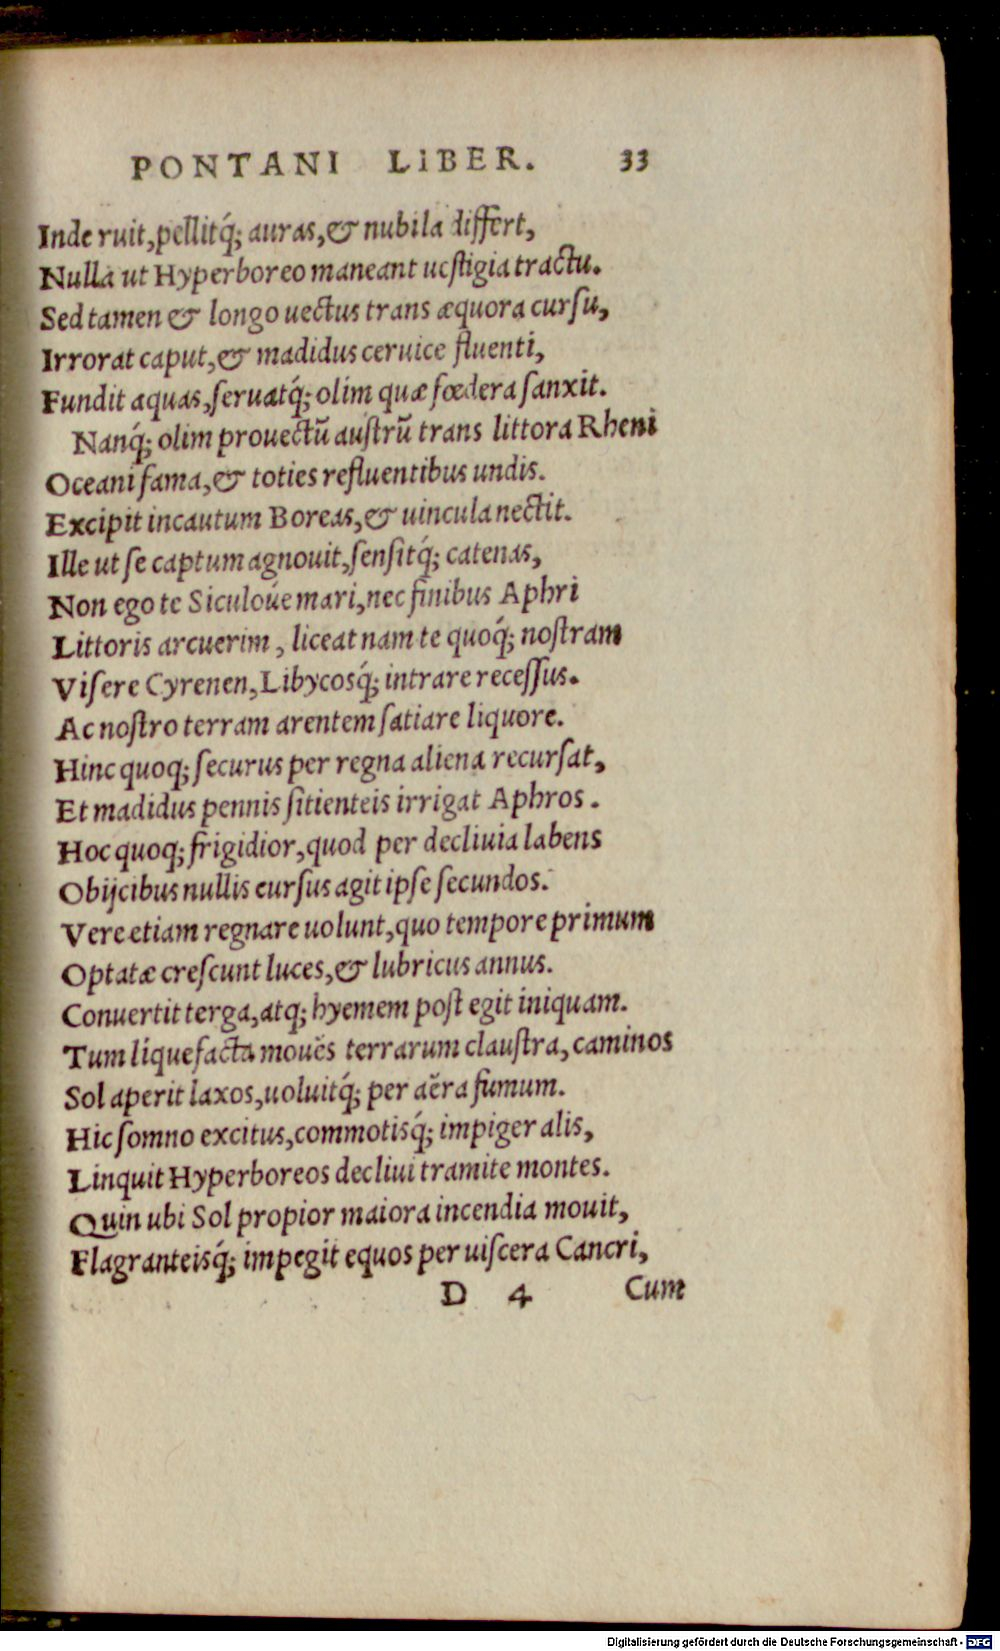 PONTANI LIBER. 33
Inde ruit, pellitq́; auras, & nubila differt,
Nulla ut Hyperboreo maneant uestigia tractu.
Sed tamen & longo uectus trans æquora cursu,
Irrorat caput, & madidus ceruice fluenti,
Fundit aquas, seruatq́; olim quæ fœdera sanxit.
Nanq́; olim prouectũ austrũ trans littora Rheni
Oceani fama, & toties refluentibus undis.
Excipit incautum Boreas, & uincula nectit.
Ille ut se captum agnouit, sensitq́; catenas,
Non ego te Siculoúe mari, nec finibus Aphri
Littoris arcuerim, liceat nam te quoq́; nostram
Visere Cyrenen, Libycosq́; intrare recessus.
Ac nostro terram arentem satiare liquore.
Hinc quoq; securus per regna aliena recursat,
Et madidus pennis sitienteis irrigat Aphros.
Hoc quoq; frigidior, quod per decliuia labens
Obijcibus nullis cursus agit ipse secundos.
Vere etiam regnare uolunt, quo tempore primum
Optatæ crescunt luces, & lubricus annus.
Conuertit terga, atq; hyemem post egit iniquam.
Tum liquefacta mouẽs terrarum claustra, caminos
Sol aperit laxos, uoluitq́; per aëra fumum.
Hic somno excitus, commotisq́; impiger alis,
Linquit Hyperboreos decliui tramite montes.
Quin ubi Sol propior maiora incendia mouit,
Flagranteisq́; impegit equos per uiscera Cancri,
D 4 Cum
Digitalisierung gefördert durch die Deutsche Forschungsgemeinschaft - DFG